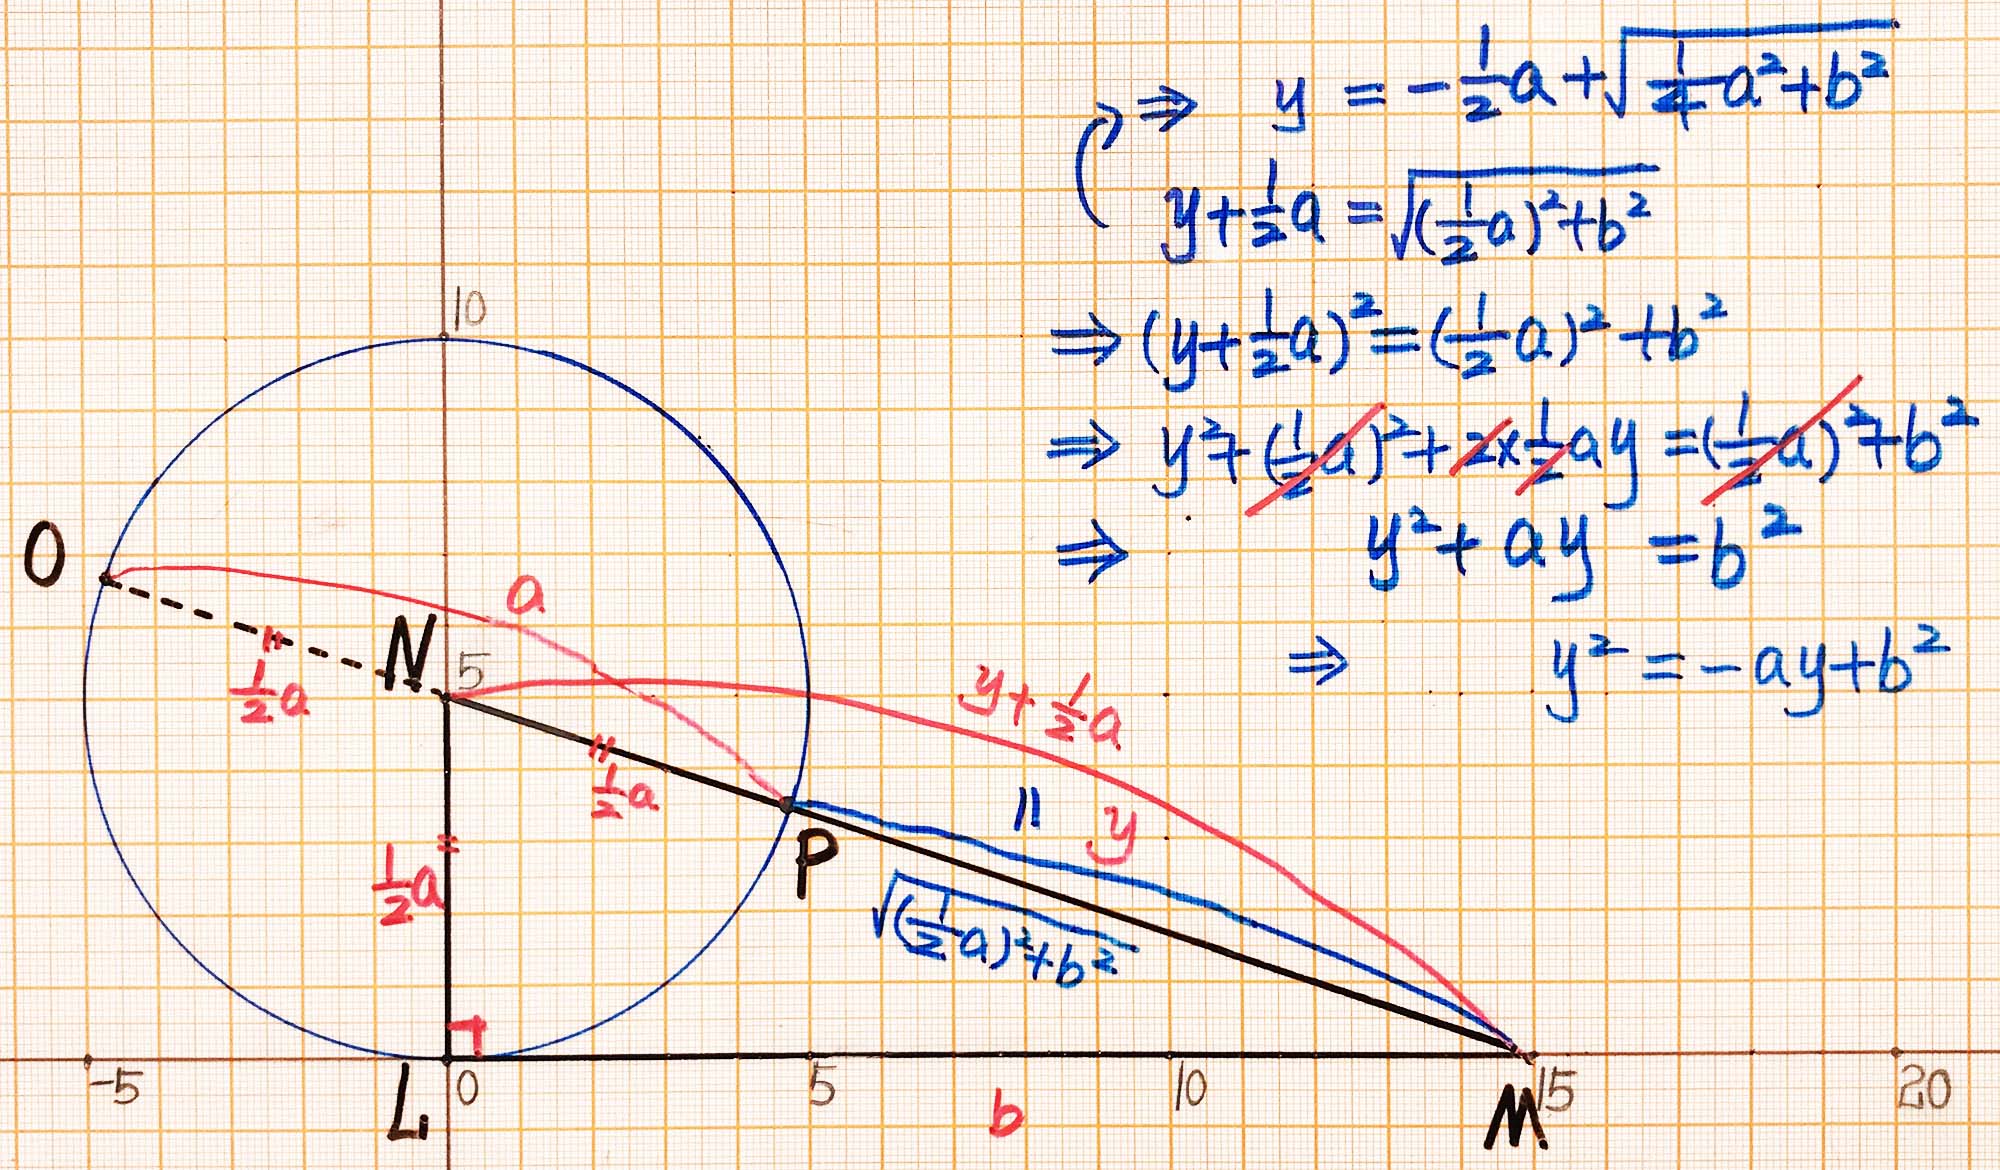 ⇒ y = -1/2 a + √(1/4 a² + b²)
y + 1/2 a = √((1/2 a)² + b²)
⇒ (y + 1/2 a)² = (1/2 a)² + b²
⇒ y² + (1/2 a)² + 2 × 1/2 a y = (1/2 a)² + b²
⇒ y² + ay = b²
⇒ y² = -ay + b²
10
O
a
N
5
1/2 a
y + 1/2 a
1/2 a
||
y
P
1/2 a
√((1/2 a)² + b²)
-5
L
0
5
b
10
M
15
20